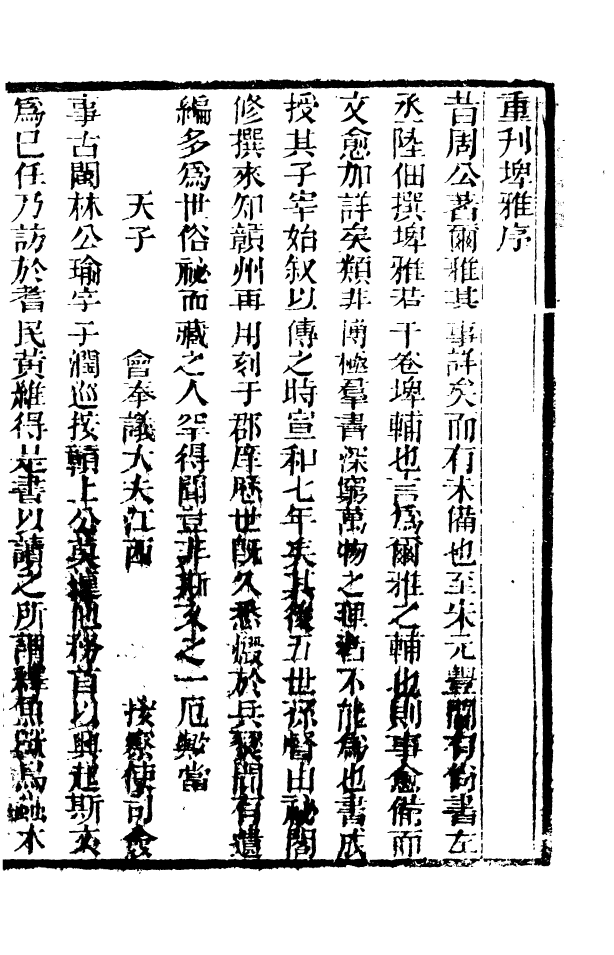 重刋埤雅序
昔周公著爾雅其事詳矣而有未備也至宋元豐間有尚書左
丞陸佃撰埤雅若干卷埤輔也言爲爾雅之輔也則事愈備而
文愈加詳矣類非博極羣書深窮萬物之理者不能爲也書成
授其子宰始叙以傳之時宣和七年矣其後五世孫壑由祕閣
修撰來知贛州再用刻于郡庠歷世既久悉燬於兵燹間有遺
編多爲世俗祕而藏之人罕得聞豈非斯文之一厄歟當
天子　會奉議大夫江西　按察使司僉
事古閩林公瑜字子潤巡按贛上公英擁他務首以興起斯文
爲己任乃訪於耆民黃維得是書以讀之所謂釋魚獸鳥蟲木